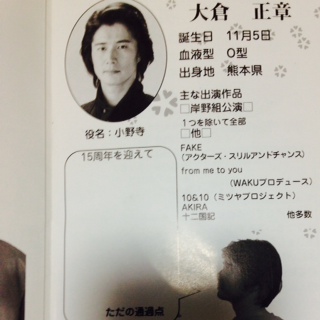 大倉　正章
誕生日　11月5日
血液型　O型
出身地　熊本県
主な出演作品
□岸野組公演□
1つを除いて全部
□他□
FAKE
(アクターズ・スリルアンドチャンス)
from me to you
(WAKUプロデュース)
10&10(ミツヤプロジェクト)
AKIRA
十二国記　他多数
役名：小野寺
15周年を迎えて
ただの通過点